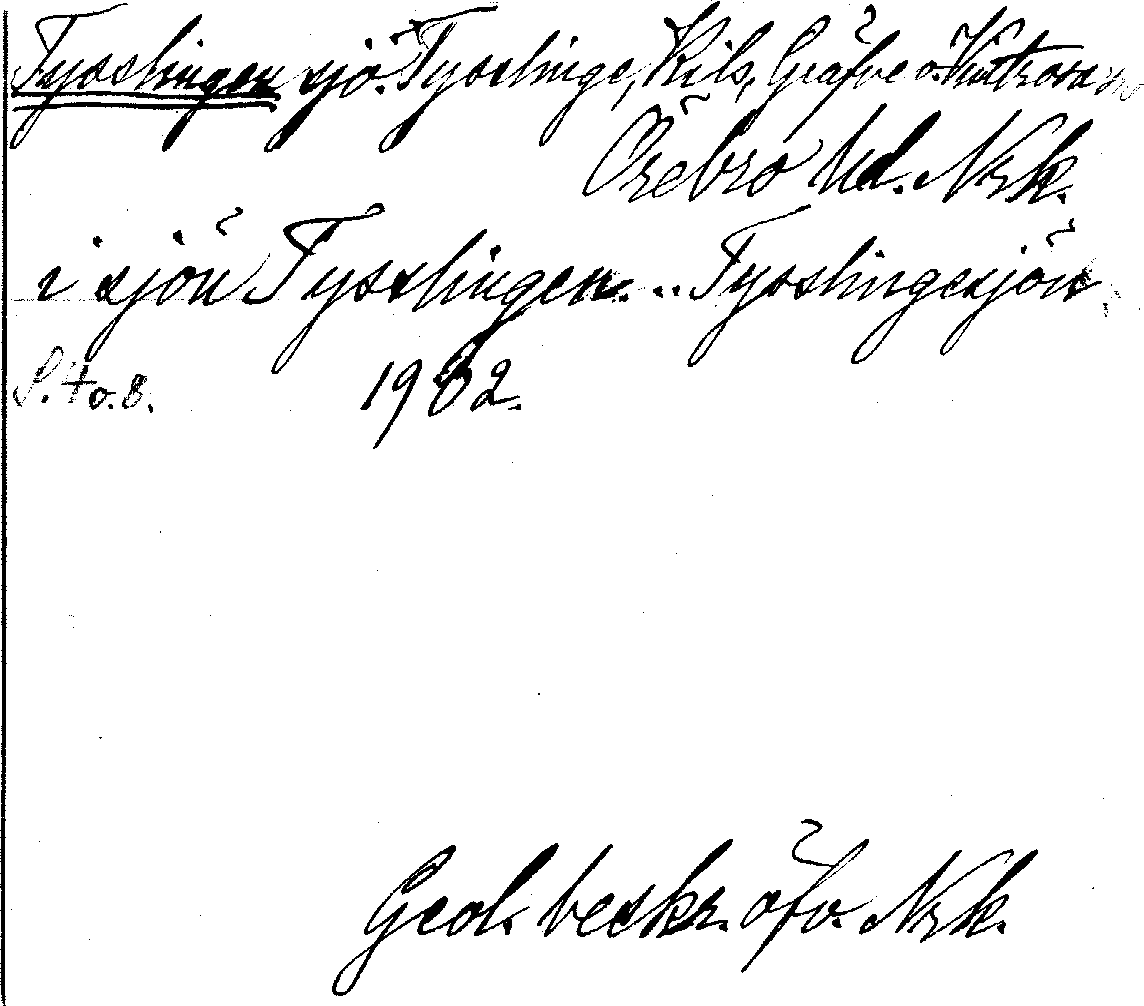 Tysslingen sjö. Tysslinge, Kils, Gräfve o. Vintrosa snr
Örebro hd. Nrk.
i sjön Tysslingen. .. Tysslingesjön.
S. 4 o. 8. 1902.
Geol. beskr. öfv. Nrk.